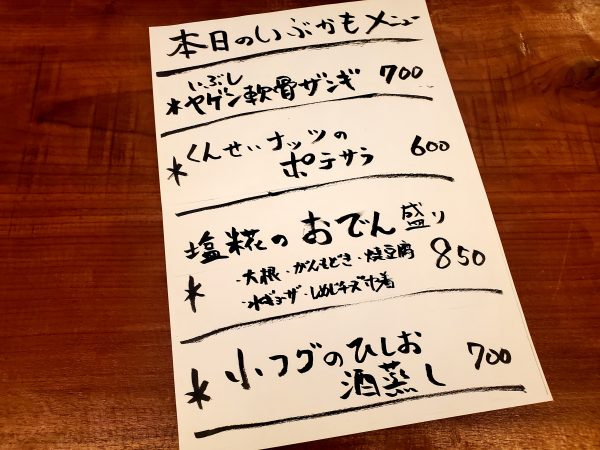 本日のいぶかもメニュー
いぶし
*ヤゲン軟骨ザンギ 700
*くんせいナッツの
ポテサラ 600
塩糀のおでん盛り
・大根・がんもどき・焼豆腐 850
*・水ギョーザ・しめじチーズ巾着
*小フグのひしお 700
酒蒸し